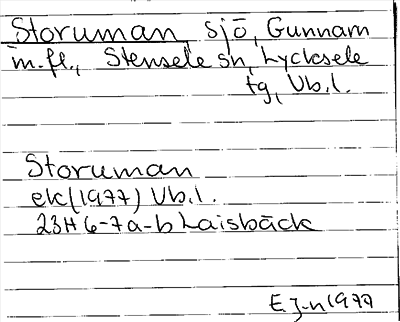 Storuman, sjö, Gunnarn
m.fl., Stensele sn, Lycksele
tg, Vb.l.
Storuman
ek(1977) Vb.l.
23H 6-7a-b Laisbäck
E J-n 1977